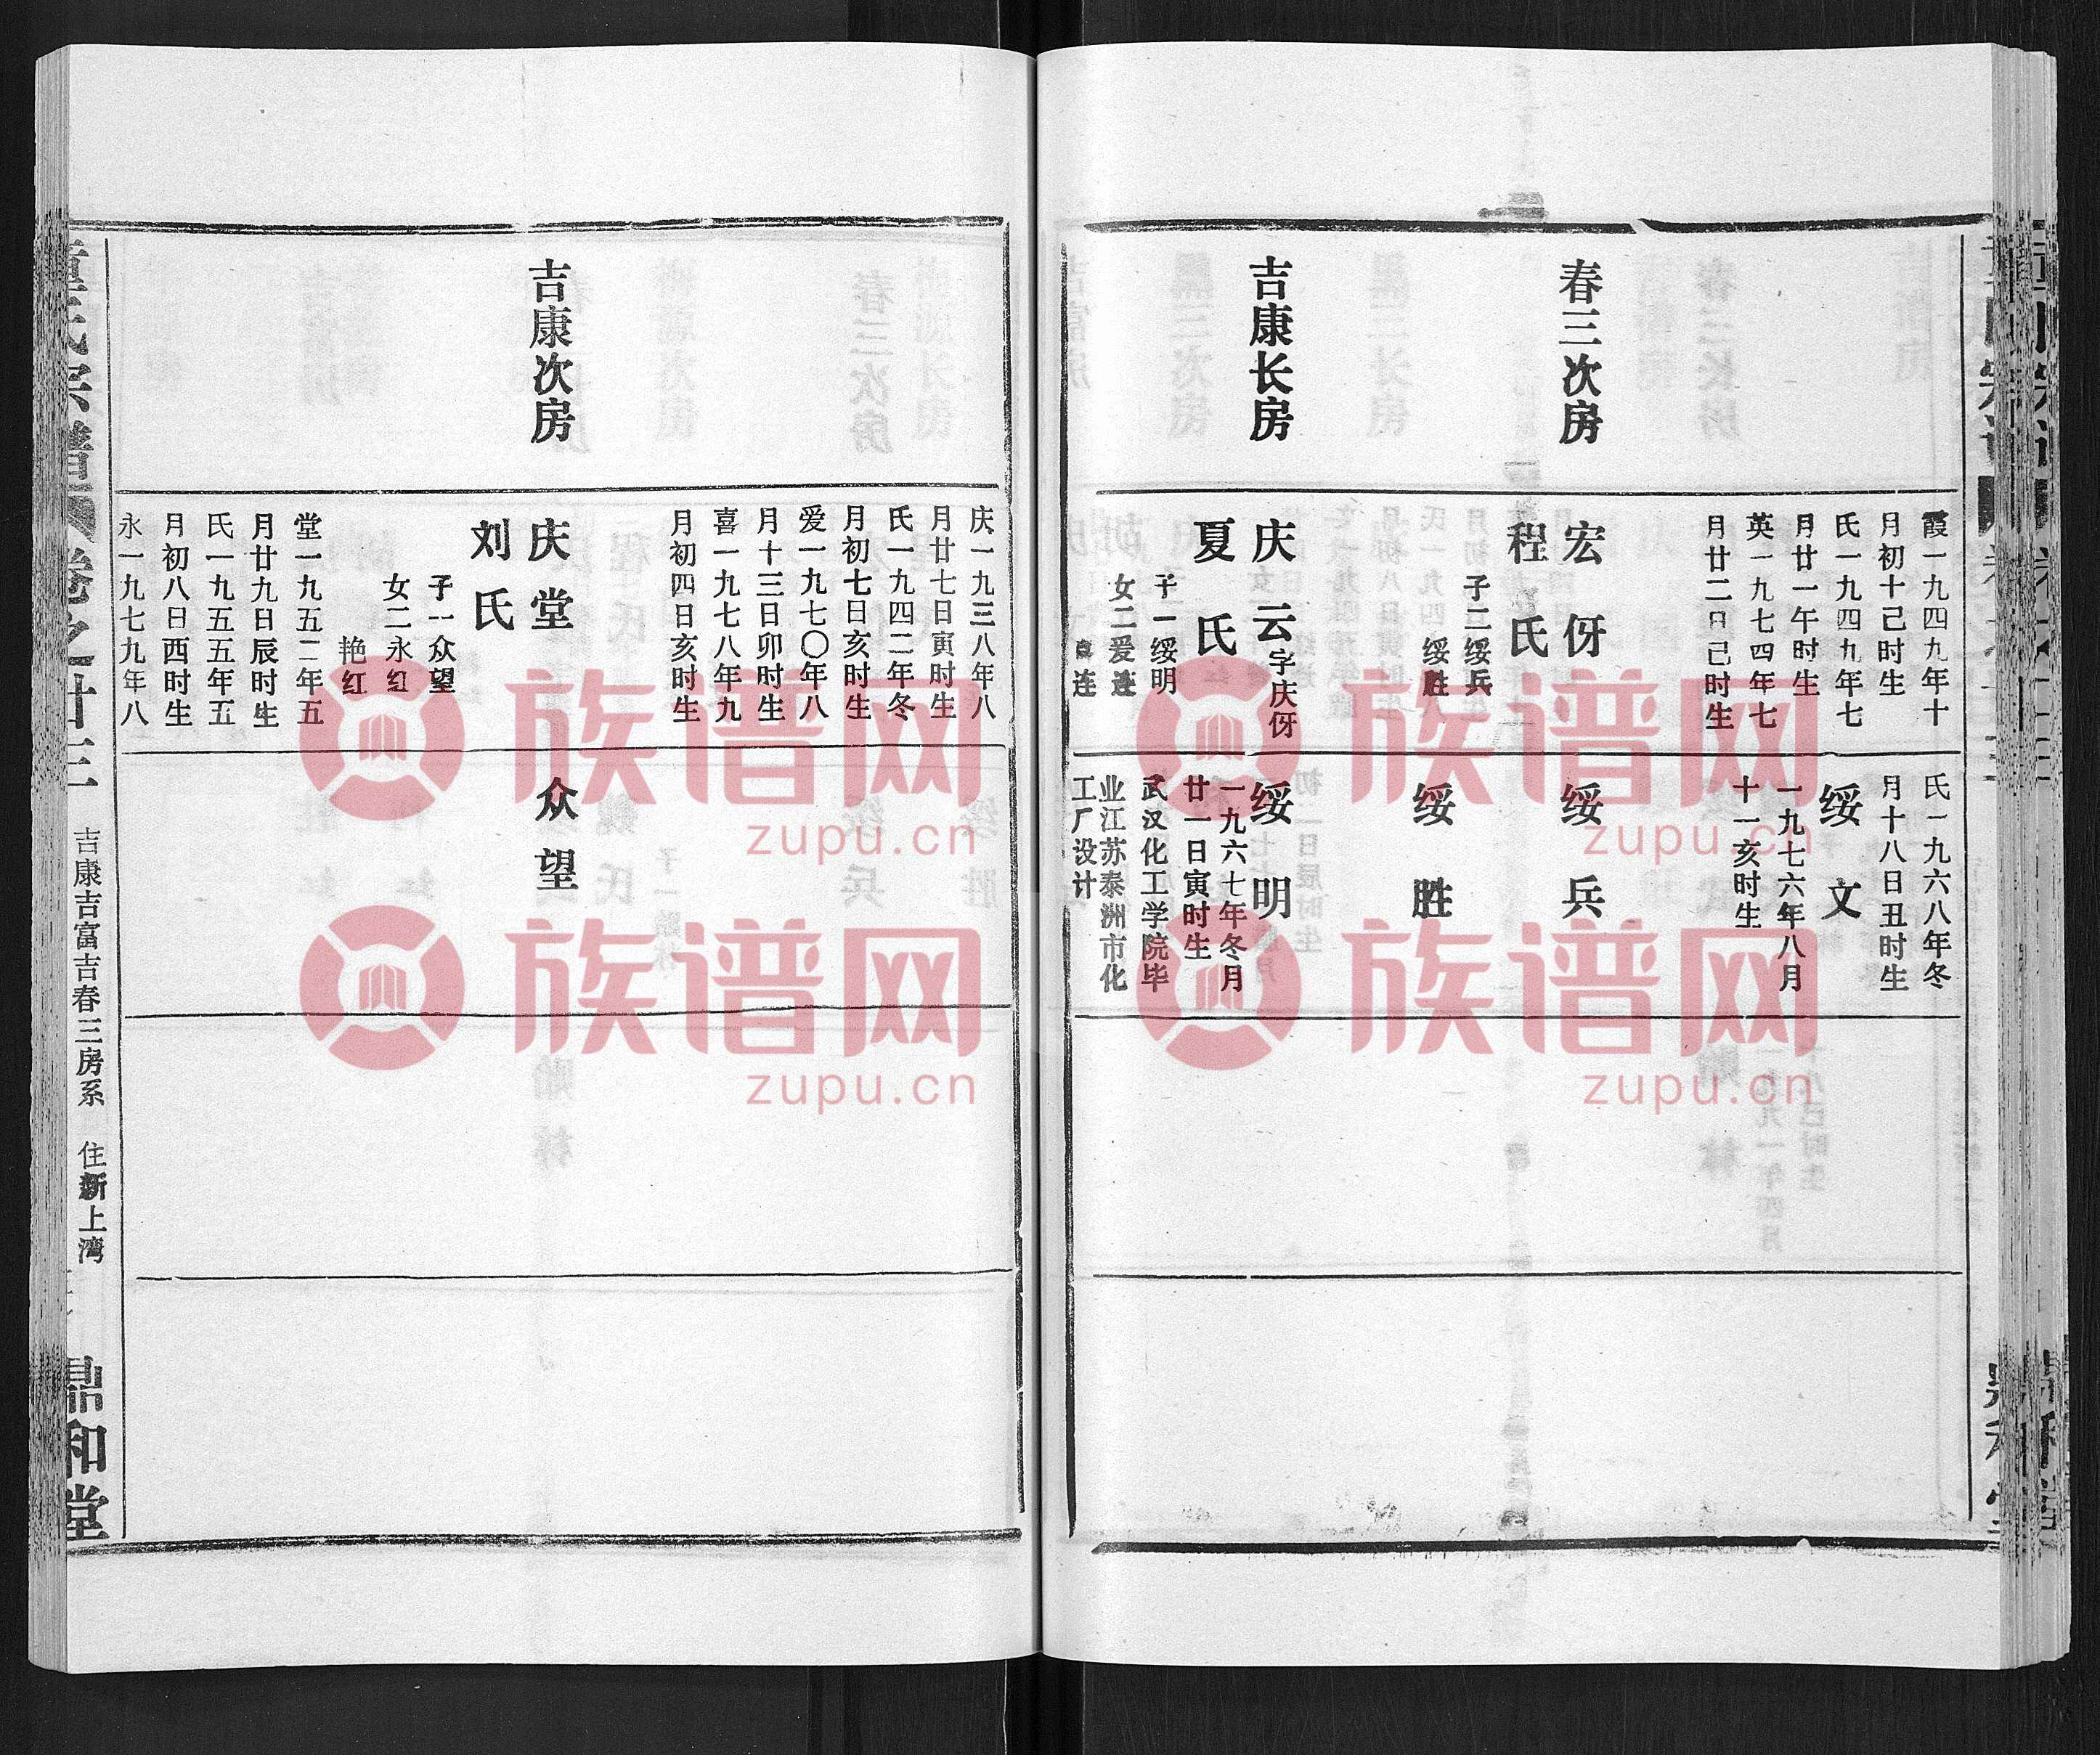 春三次房
吉康长房
霞一九四九年十
月初十己时生
氏一九四九年七
月廿一午时生
英一九七四年七
月廿二日己时生
宏伢
程氏
子二绥兵
绥胜
庆云字庆伢
夏氏
子一绥明
女二爱连
连
氏一九六八年冬
月十八日丑时生
绥文
一九七六年八月
十一亥时生
绥兵
绥胜
绥明
一九六七年冬月
廿一日寅时生
武汉化工学院毕
业江苏泰洲市化
工厂设计
吉康次房
庆一九三八年八
月廿七日寅时生
氏一九四二年冬
月初七日亥时生
爱一九七〇年八
月十三日卯时生
喜一九七八年九
月初四日亥时生
庆堂
刘氏
子一众望
女二永红
艳红
堂一九五二年五
月廿九日辰时生
氏一九五五年五
月初八日酉时生
永一九七九年八
众望
童氏宗谱 卷之廿三 吉康吉富吉春三房系 住新上湾
鼎和堂
族谱网
zupu.cn
族谱网
zupu.cn
族谱网
zupu.cn
族谱网
zupu.cn